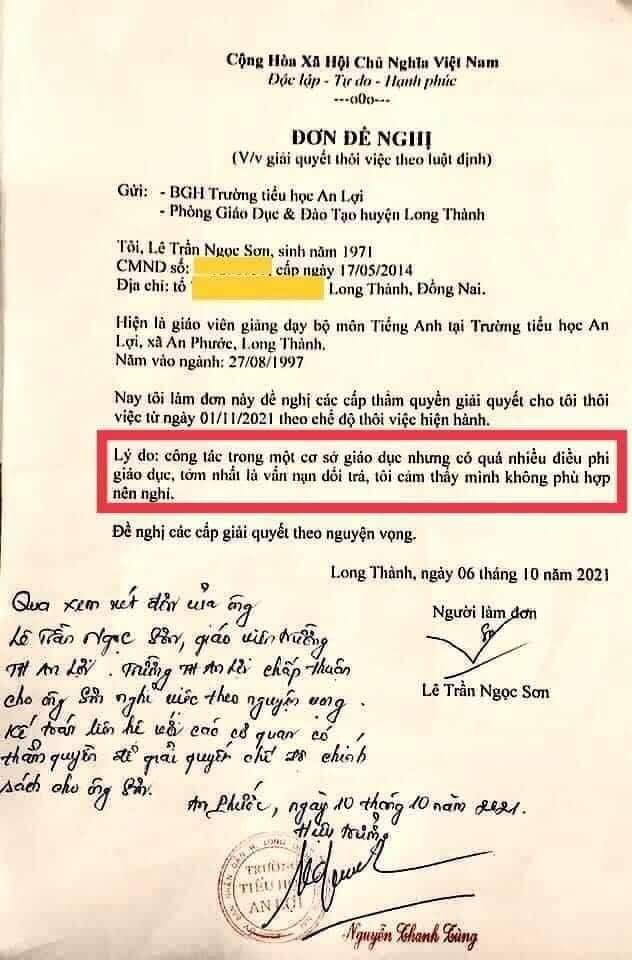 Cộng Hòa Xã Hội Chủ Nghĩa Việt Nam
Độc lập - Tự do - Hạnh phúc
---o0o---
ĐƠN ĐỀ NGHỊ
(V/v giải quyết thôi việc theo luật định)
Gửi: - BGH Trường tiểu học An Lợi
- Phòng Giáo Dục & Đào Tạo huyện Long Thành
Tôi, Lê Trần Ngọc Sơn, sinh năm 1971
CMND số: , cấp ngày 17/05/2014
Địa chỉ: tổ Long Thành, Đồng Nai.
Hiện là giáo viên giảng dạy bộ môn Tiếng Anh tại Trường tiểu học An
Lợi, xã An Phước, Long Thành.
Năm vào ngành: 27/08/1997
Nay tôi làm đơn này đề nghị các cấp thẩm quyền giải quyết cho tôi thôi
việc từ ngày 01/11/2021 theo chế độ thôi việc hiện hành.
Lý do: công tác trong một cơ sở giáo dục nhưng có quá nhiều điều phi
giáo dục, tởm nhất là vấn nạn dối trá, tôi cảm thấy mình không phù hợp
nên nghỉ.
Đề nghị các cấp giải quyết theo nguyện vọng.
Long Thành, ngày 06 tháng 10 năm 2021
Người làm đơn
Lê Trần Ngọc Sơn
Qua xem xét đơn của ông
Lê Trần Ngọc Sơn, giáo viên trường
TH An Lợi. Trường TH An Lợi chấp thuận
cho ông Sơn nghỉ việc theo nguyện vọng.
Kế toán liên hệ với các cơ quan có
thẩm quyền để giải quyết chế độ chính
sách cho ông Sơn.
An Phước, ngày 10 tháng 10 năm 2021.
Hiệu trưởng
TRƯỜNG
TIỂU HỌC
AN LỢI
Nguyễn Thanh Tùng